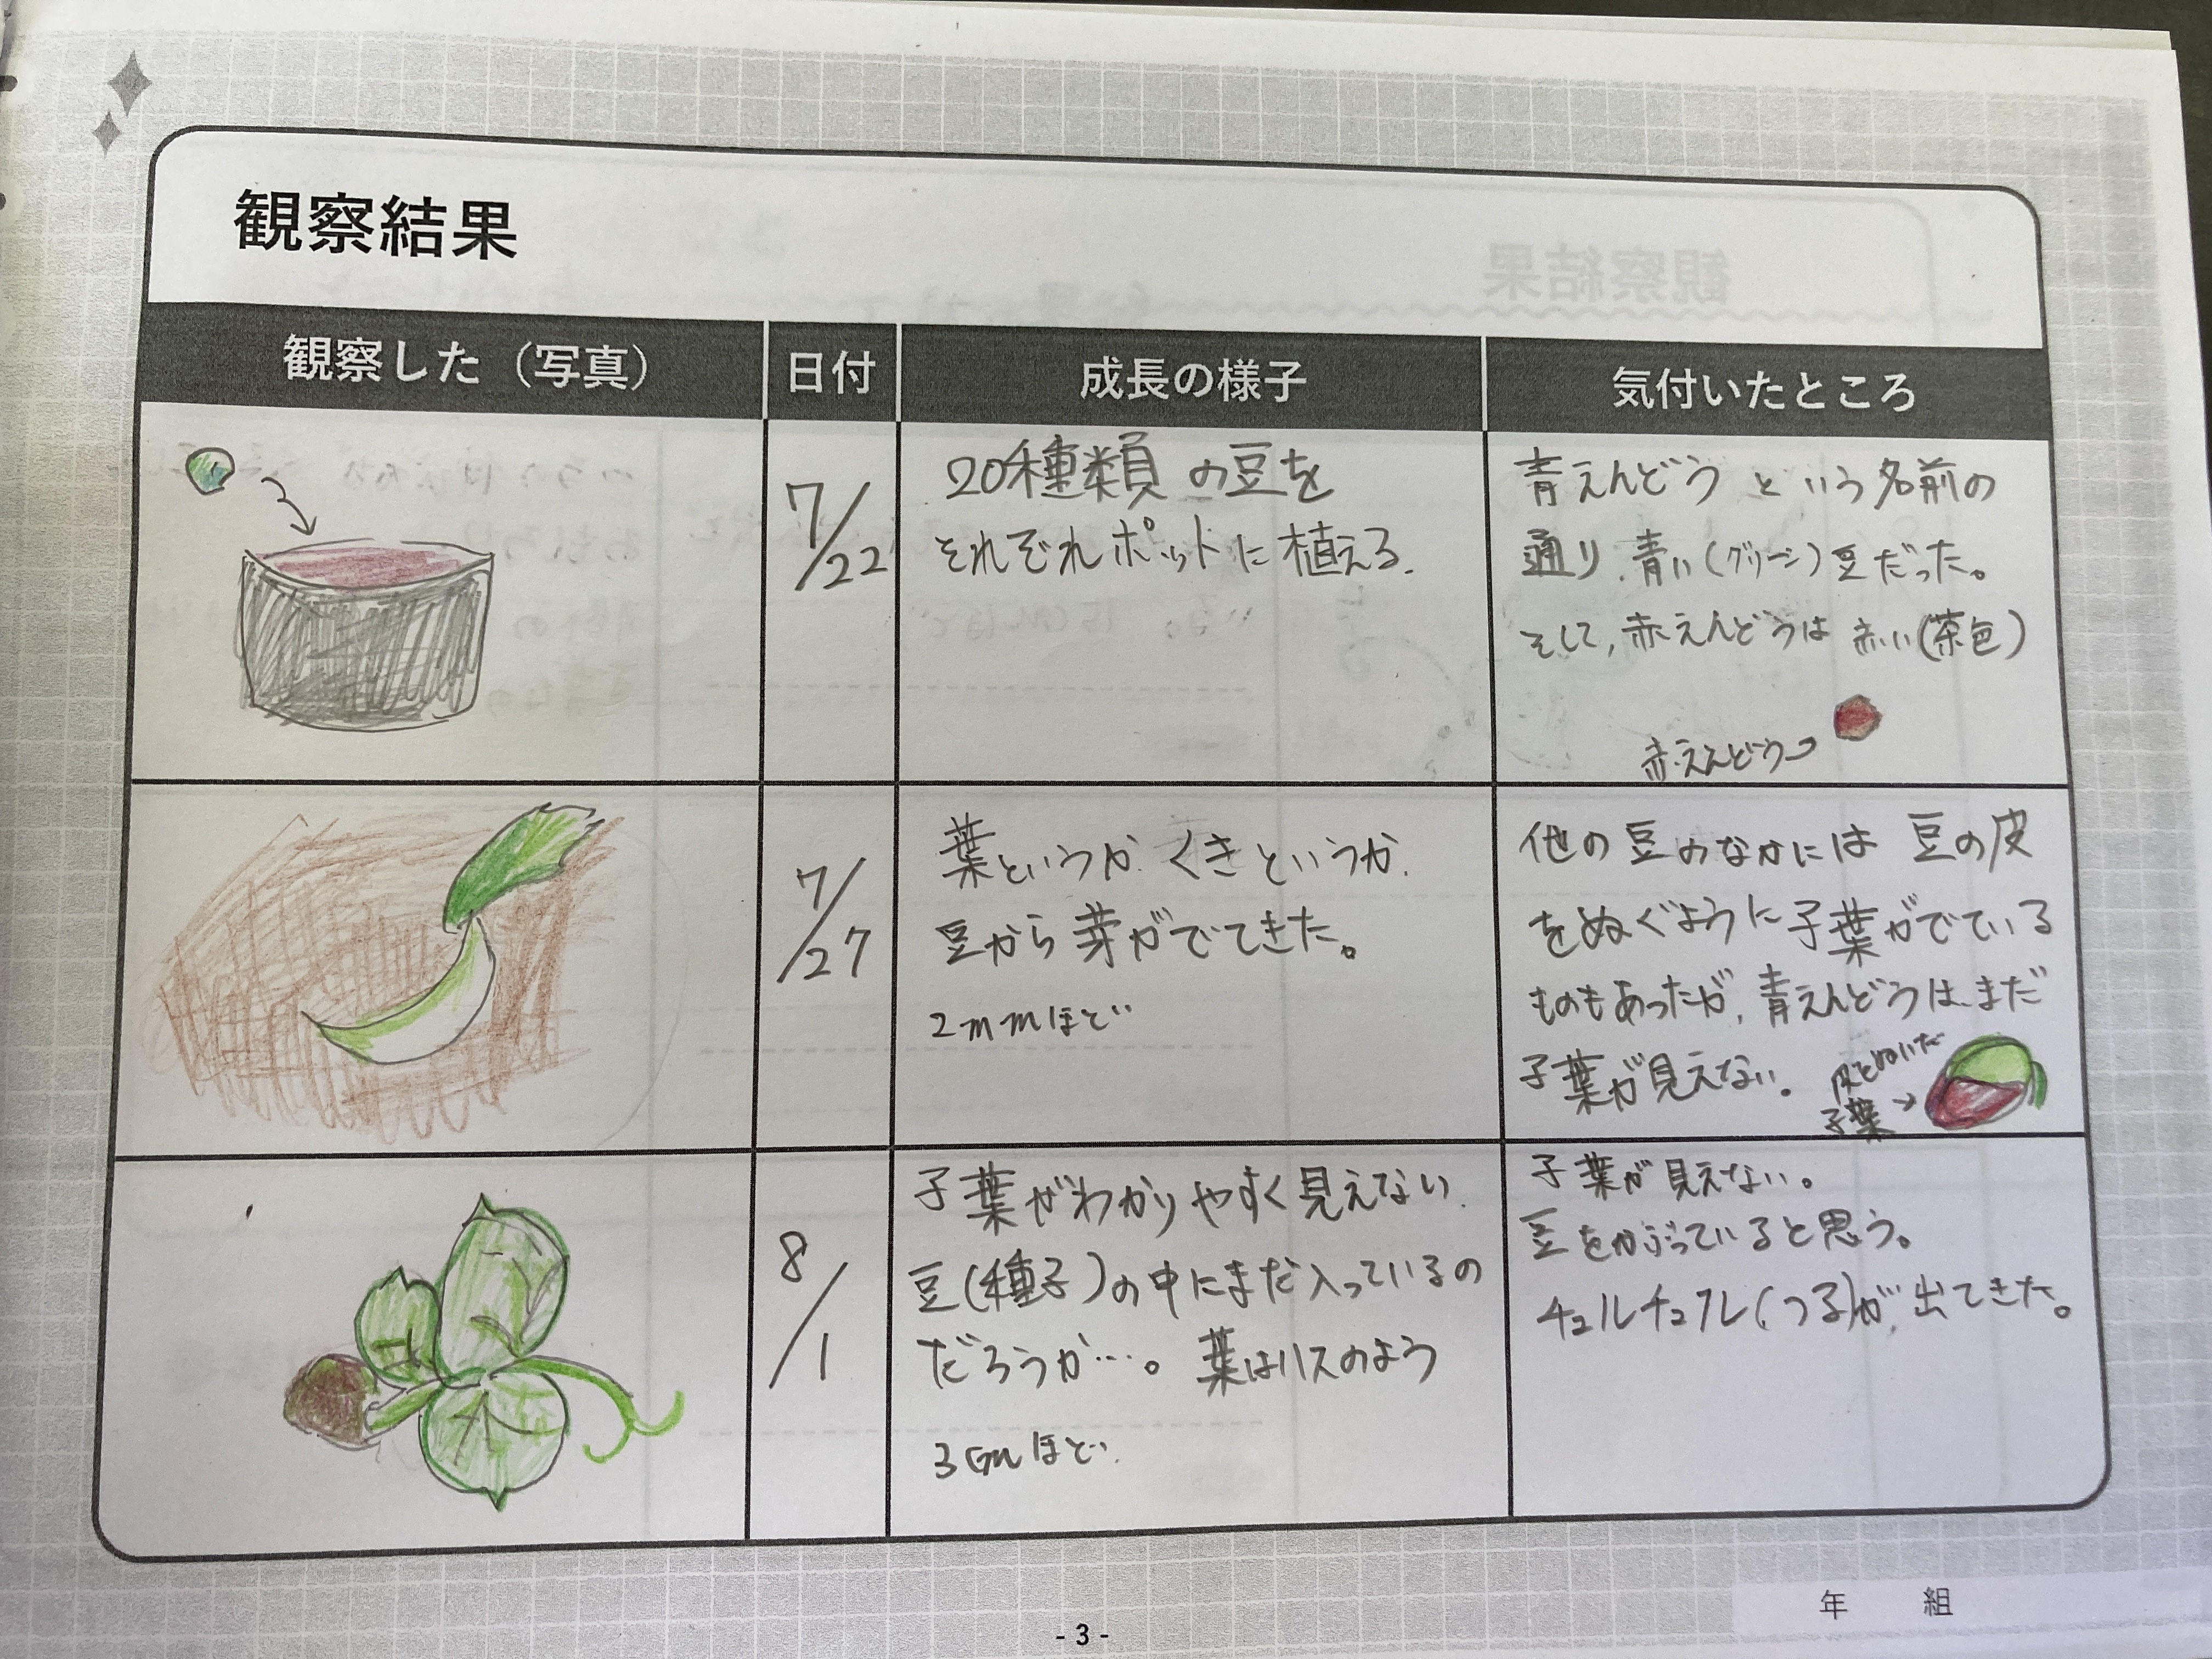 観察結果
観察した（写真）
日付
成長の様子
気付いたところ
7/22
20種類の豆を
それぞれポットに植える.
青えんどうという名前の
通り、青い(グリーン)豆だった。
そして,赤えんどうは赤い(茶色)
赤えんどう
7/27
葉というか くきというか.
豆から芽がでてきた。
2mmほど
他の豆のなかには 豆の皮
をぬぐように子葉がでている
ものもあったが,青えんどうは、まだ
子葉が見えない。
皮をぬいだ
子葉→
8/1
子葉がわかりやすく見えない.
豆(種子)の中にまだ入っているの
だろうか…。葉はハスのよう
3cmほど.
子葉が見えない。
豆をかぶっていると思う。
チュルチュル(つる)が出てきた。
年 組
- 3 -